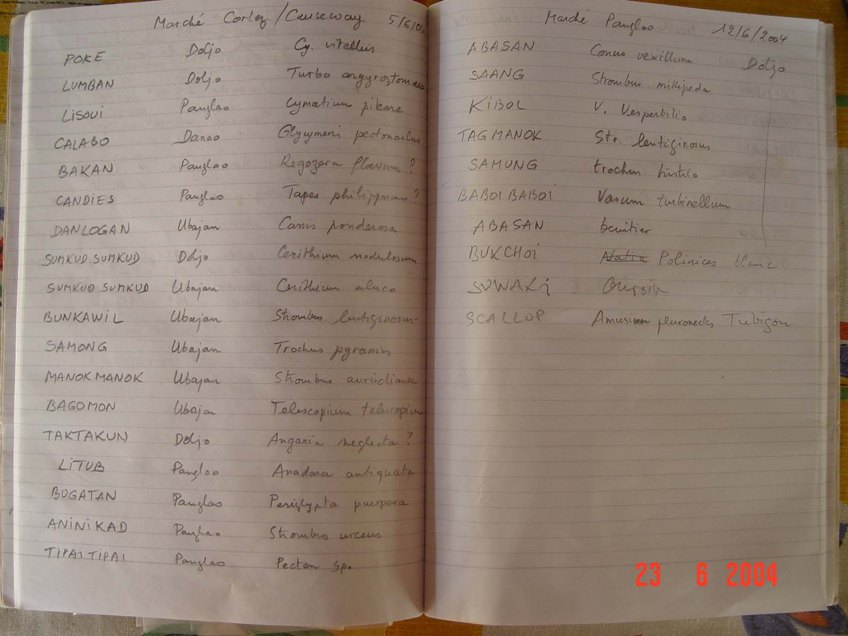 Marché Cortez / Causeway 5/6/04
POKE Doljo Cy. vitellus
LUMBAN Doljo Turbo argyrostomus
LISOUI Panglao Cymatium pileare
CALABO Danao Glycymeris pectunculus
BAKAN Panglao Regozara flavum ?
CANDIES Panglao Tapes philippinarum ?
DANLOGAN Ubajan Cassis ponderosa
SUMKUD SUMKUD Doljo Cerithium nodulosum
SUMKUD SUMKUD Ubajan Cerithium aluco
BUNKAWIL Ubajan Strombus lentiginosus
SAMONG Ubajan Trochus pyramis
MANOKMANOK Ubajan Strombus aurisdianae
BAGOMON Ubajan Telescopium telescopium
TAKTAKUN Doljo Angaria neglecta ?
LITUB Panglao Anadara antiquata
BUGATAN Panglao Periglypta purpura
ANINIKAD Panglao Strombus urceus
TIPAI TIPAI Panglao Pecten sp.
Marché Panglao 12/6/2004
ABASAN Conus vexillum Doljo
SAANG Strombus millepeda
KIBOL V. Vespertilio
TAGMANOK Str. lentiginosus
SAMUNG trochus
BABOI BABOI Vasum turbinellum
ABASAN benitier
BUKCHOI Natia Polinices blanc
SUWAKI Oursin
SCALLOP Amusium pleuronectes Tubigon
23 6 2004